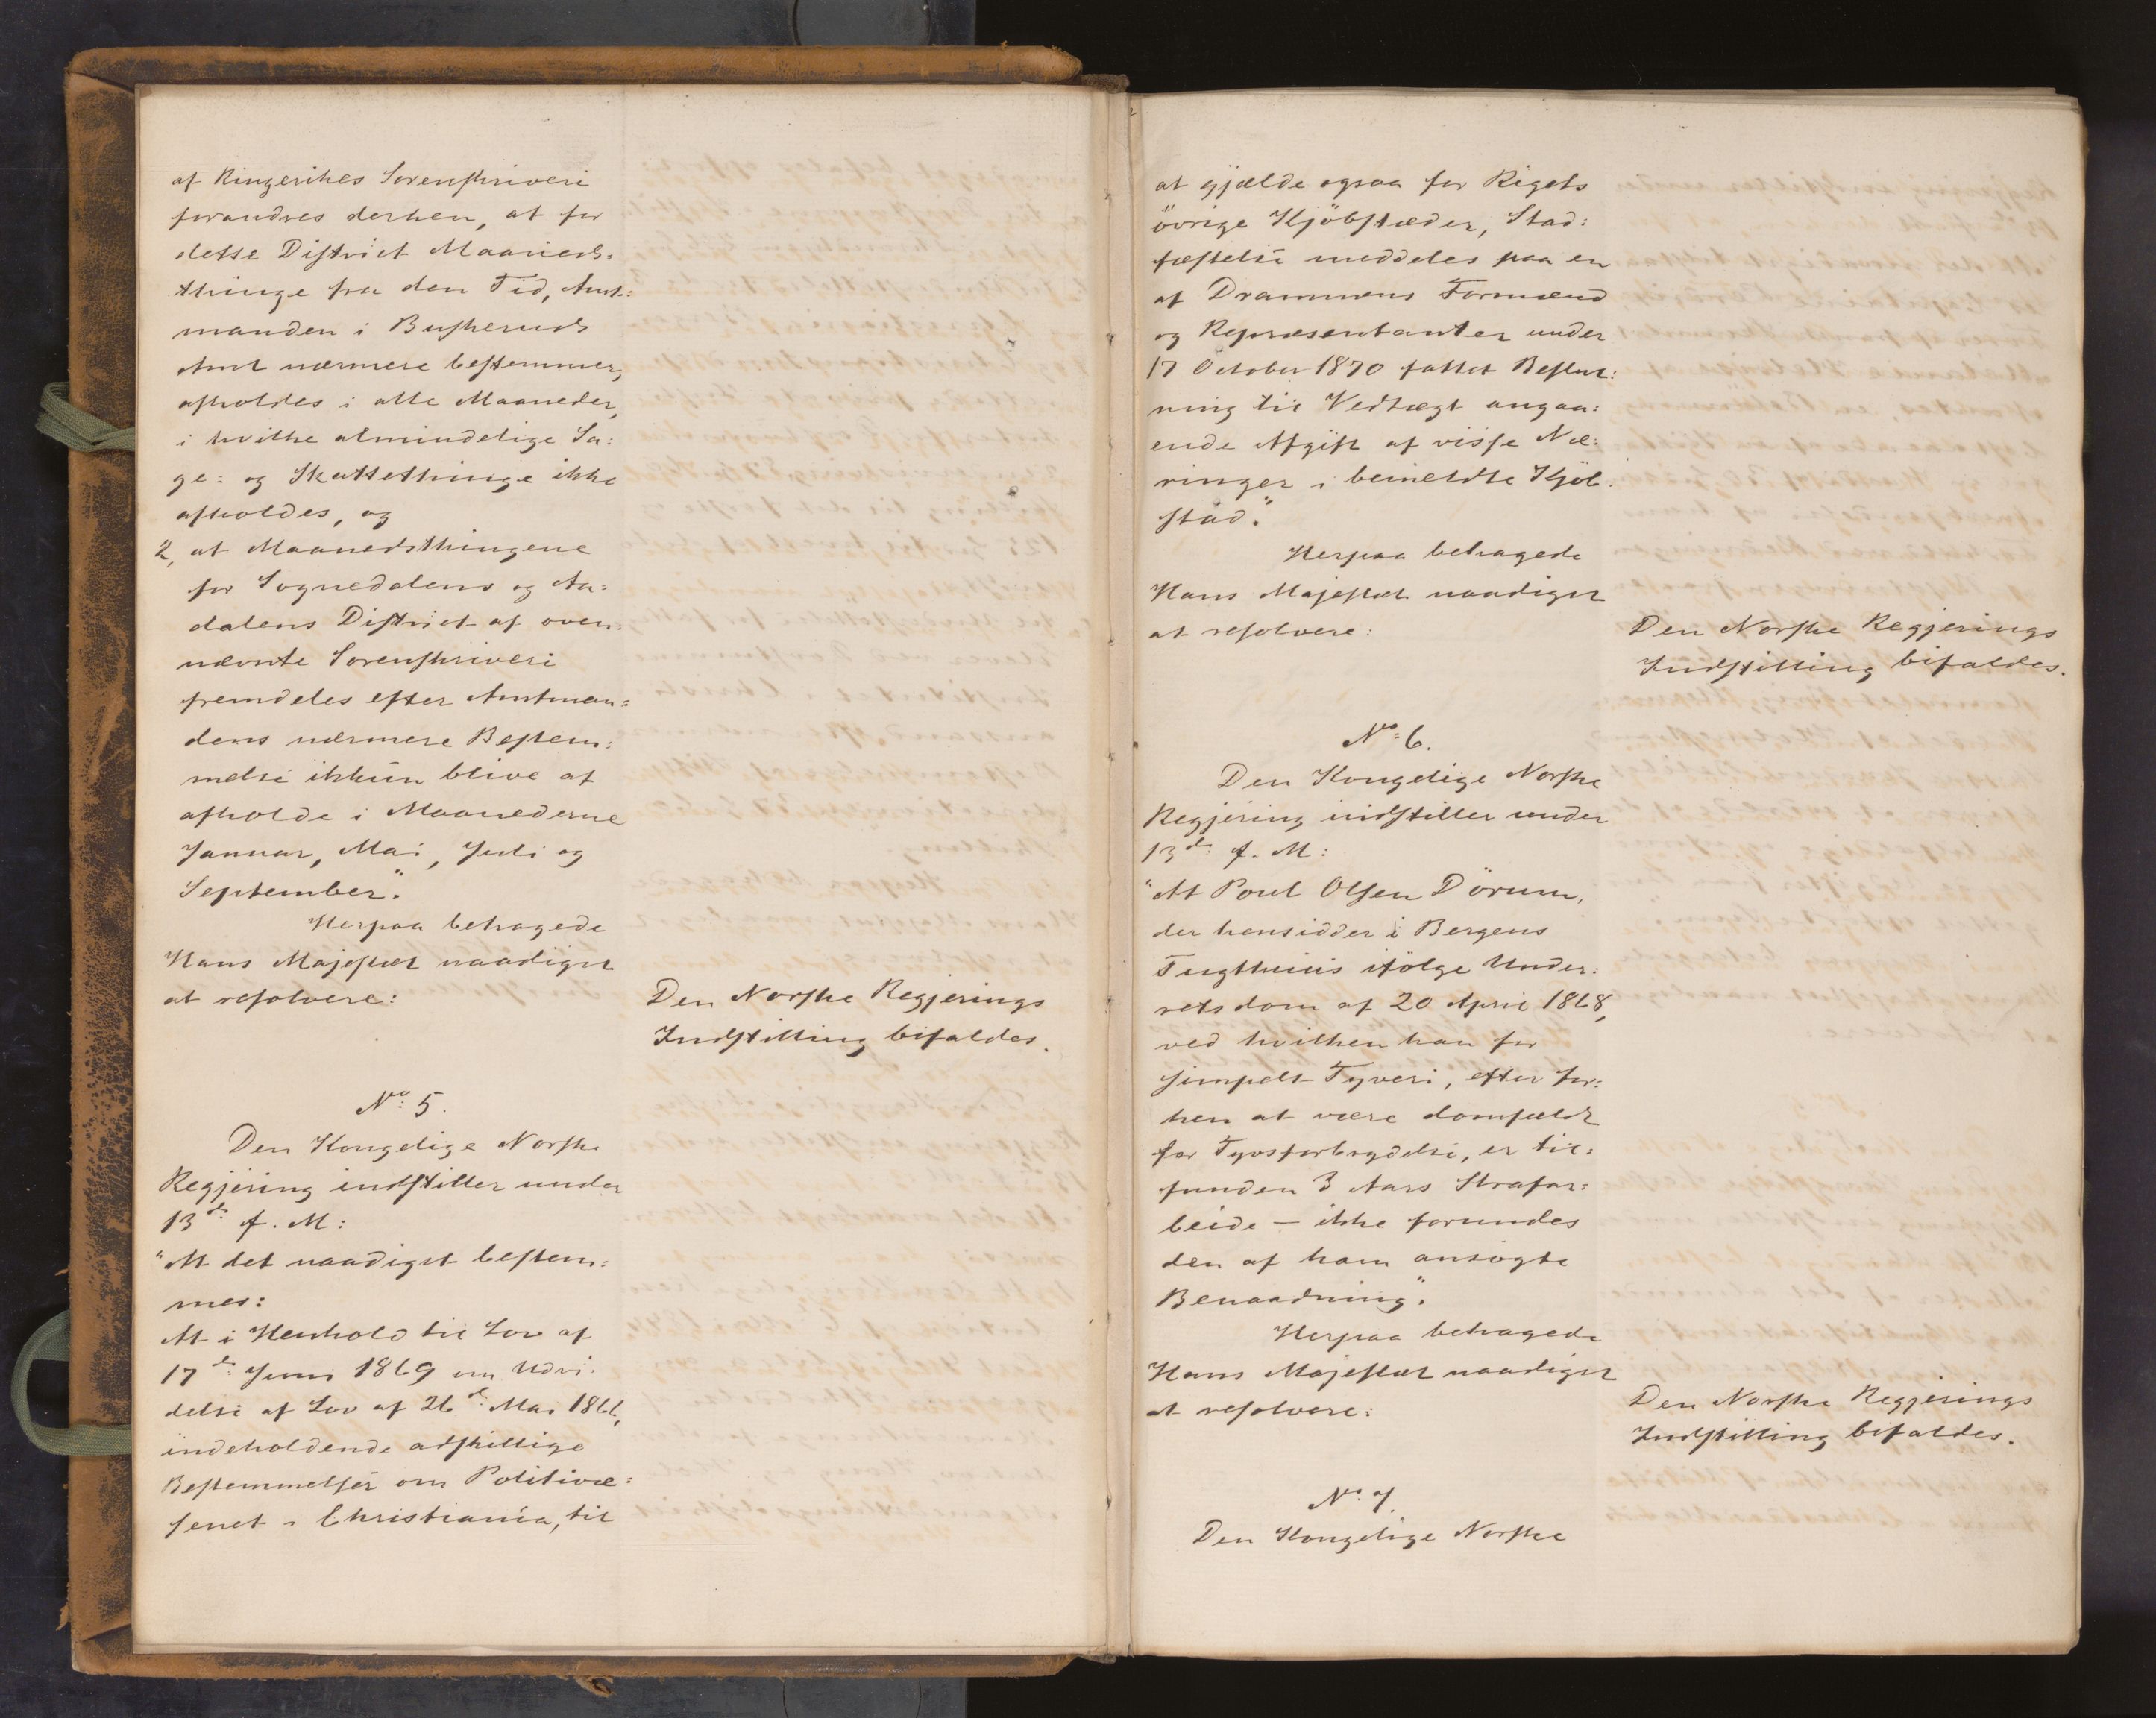 af Ringerikes Sorenskriveri
forandres derhen, at for
dette District Maaneds=
thinge fra den Tid, Amt=
manden i Buskeruds
Amt nærmere bestemmer,
afholdes i alle Maaneder,
i hvilke almindelige Sa=
ge= og Skattethinge ikke
afholdes, og
2, at Maanedsthingene
for Sognedalens og Aa=
dalens District af oven=
nævnte Sorenskriveri
fremdeles efter Amtman=
dens nærmere Bestem=
melse ikkun blive at
afholde i Maanederne
Januar, Mai, Juli og
September".
Herpaa behagede
Hans Majestæt naadigst
at resolvere:
Den Norske Regjerings
Indstilling bifaldes.
No 5.
Den Kongelige Norske
Regjering indstiller under
13de f. M:
"At det naadigst bestem=
mes:
At i Henhold til Lov af
17de Juni 1869 om Udvi=
delse af Lov af 26de Mai 1866,
indeholdende adskillige
Bestemmelser om Politivæ=
senet i Christiania, til
at gjælde ogsaa for Rigets
övrige Kjöbstæder, Stad=
fæstelse meddeles paa en
af Drammens Formænd
og Repræsentanter under
17 October 1870 fattet Beslut=
ning til Vedtægt angaa=
ende Afgift af visse Næ=
ringer i bemeldte Kjöb=
stad."
Herpaa behagede
Hans Majestæt naadigst
at resolvere:
Den Norske Regjerings
Indstilling bifaldes.
No 6.
Den Kongelige Norske
Regjering indstiller under
13de f. M:
"At Poul Olsen Dörum,
der hensidder i Bergens
Tugthuus ifölge Under=
retsdom af 20 April 1868,
ved hvilken han for
simpelt Tyveri, efter for=
hen at være domfældt
for Tyvsforbrydelse, er til=
funden 3 Aars Strafar=
beide – ikke forundes
den af ham ansögte
Benaadning".
Herpaa behagede
Hans Majestæt naadigst
at resolvere:
Den Norske Regjerings
Indstilling bifaldes.
No 7.
Den Kongelige Norske